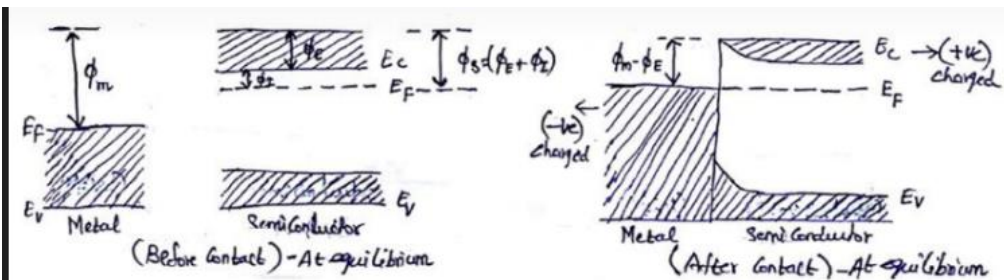 ϕm
EF
Ev
Metal
ϕE
ϕI
Ec
EF
ϕs=(ϕE+ϕI)
Ev
Semiconductor
(Before Contact)-At equilibrium
ϕm-ϕE
(-ve)
charged
Ec → (+ve)
charged
EF
Ev
Metal
Semi Conductor
(After Contact)-At equilibrium